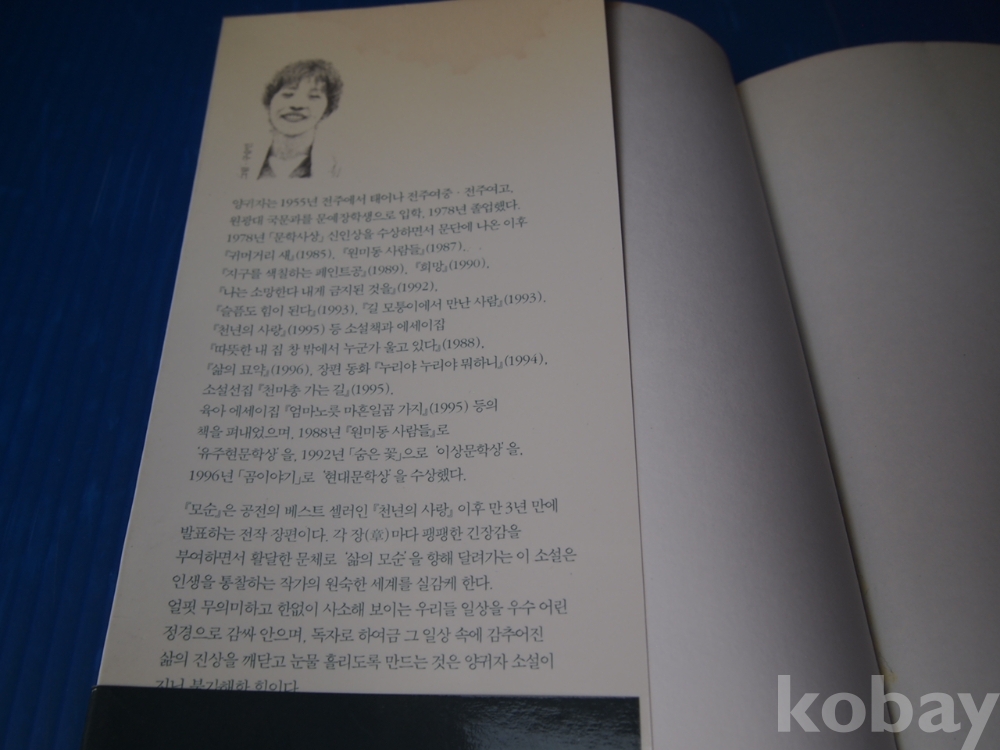 양귀자는 1955년 전주에서 태어나 전주여중 · 전주여고,
원광대 국문과를 문예장학생으로 입학, 1978년 졸업했다.
1978년 「문학사상」 신인상을 수상하면서 문단에 나온 이후
『귀머거리 새』(1985), 『원미동 사람들』(1987),
『지구를 색칠하는 페인트공』(1989), 『희망』(1990),
『나는 소망한다 내게 금지된 것을』(1992),
『슬픔도 힘이 된다』(1993), 『길 모퉁이에서 만난 사람』(1993),
『천년의 사랑』(1995) 등 소설책과 에세이집
『따뜻한 내 집 창 밖에서 누군가 울고 있다』(1988),
『삶의 묘약』(1996), 장편 동화 『누리야 누리야 뭐하니』(1994),
소설선집 『천마총 가는 길』(1995),
육아 에세이집 『엄마노릇 마흔일곱 가지』(1995) 등의
책을 펴내었으며, 1988년 『원미동 사람들』로
‘유주현문학상’을, 1992년 「숨은 꽃」으로 ‘이상문학상’을,
1996년 「곰이야기」로 ‘현대문학상’을 수상했다.
『모순』은 공전의 베스트 셀러인 『천년의 사랑』 이후 만 3년 만에
발표하는 전작 장편이다. 각 장(章)마다 팽팽한 긴장감을
부여하면서 활달한 문체로 ‘삶의 모순’을 향해 달려가는 이 소설은
인생을 통찰하는 작가의 원숙한 세계를 실감케 한다.
얼핏 무의미하고 한없이 사소해 보이는 우리들 일상을 우수 어린
정경으로 감싸 안으며, 독자로 하여금 그 일상 속에 감추어진
삶의 진상을 깨닫고 눈물 흘리도록 만드는 것은 양귀자 소설이
지닌 불가해한 힘이다.
kobay